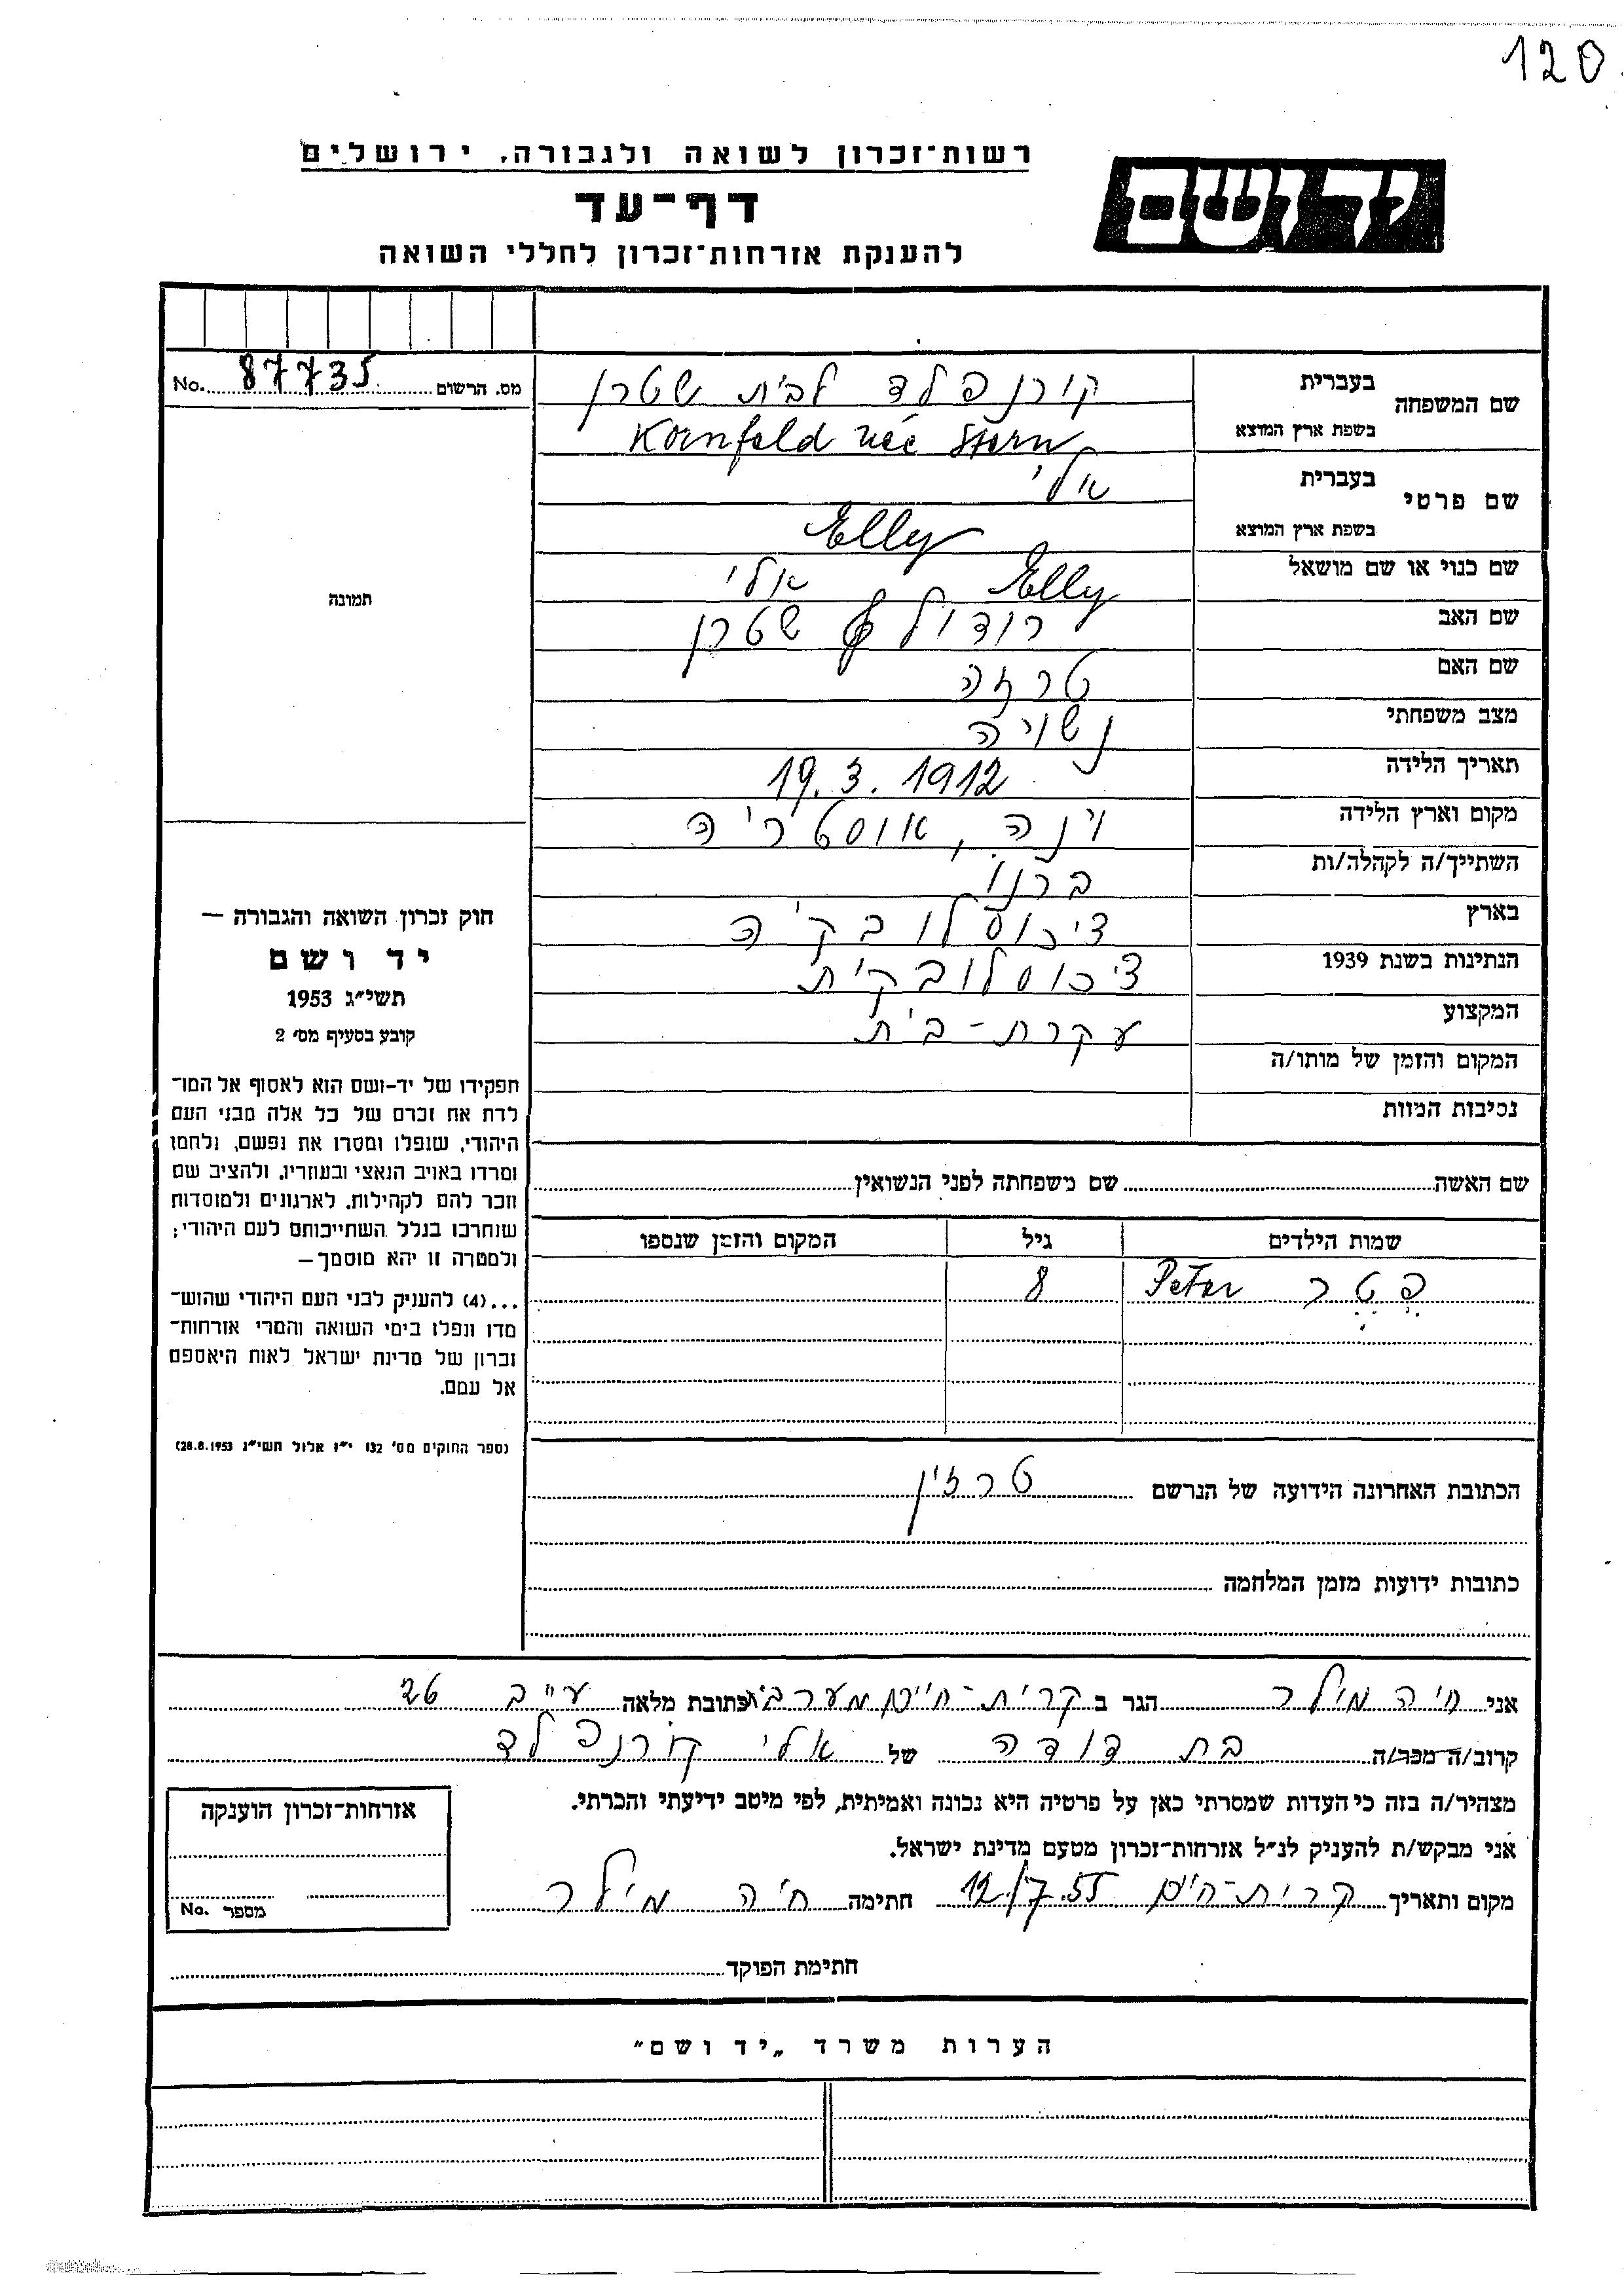 120
רשות־זכרון לשואה ולגבורה, ירושלים
יד ושם
דף־עד
להענקת אזרחות־זכרון לחללי השואה
מס. הרשום 87735 No.
שם המשפחה
בעברית קורנפלד לבית שטרן
בשפת ארץ המוצא Kornfeld née Stern
שם פרטי
בעברית אלי
בשפת ארץ המוצא Elly
שם כנוי או שם מושאל Elly אלי
שם האב רודולף שטרן
שם האם טרזה
מצב משפחתי נשויה
תאריך הלידה 19.3.1912
מקום וארץ הלידה וינה, אוסטריה
השתייך/ה לקהלה/ות ברנו
בארץ ציכוסלובקיה
הנתינות בשנת 1939 ציכוסלובקית
המקצוע עקרת-בית
המקום והזמן של מותו/ה
נסיבות המוות
תמונה
חוק זכרון השואה והגבורה —
יד ושם
תשי״ג 1953
קובע בסעיף מס׳ 2
תפקידו של יד-ושם הוא לאסוף אל המו־
לדת את זכרם של כל אלה מבני העם
היהודי, שנפלו ומסרו את נפשם, נלחמו
ומרדו באויב הנאצי ובעוזריו, ולהציב שם
וזכר להם לקהילות, לארגונים ולמוסדות
שנחרבו בגלל השתייכותם לעם היהודי;
ולמטרה זו יהא מוסמך —
...(4) להעניק לבני העם היהודי שהוש־
מדו ונפלו בימי השואה והמרי אזרחות־
זכרון של מדינת ישראל לאות היאספם
אל עמם.
(ספר החוקים מס׳ 132 י״ז אלול תשי״ג 28.8.1953)
שם האשה שם משפחתה לפני הנשואין
שמות הילדים גיל המקום והזמן שנספו
פטר Peter 8
הכתובת האחרונה הידועה של הנרשם טרזין
כתובות ידועות מזמן המלחמה
אני חיה מילר הגר ב קרית-חיים מערבית כתובת מלאה ע״ב 26
קרוב/ה מכר/ה בת דודה של אלי קורנפלד
מצהיר/ה בזה כי העדות שמסרתי כאן על פרטיה היא נכונה ואמיתית, לפי מיטב ידיעתי והכרתי.
אני מבקש/ת להעניק לנ״ל אזרחות־זכרון מטעם מדינת ישראל.
מקום ותאריך קרית-חיים 12/7.55 חתימה חיה מילר
אזרחות־זכרון הוענקה
מספר No.
חתימת הפוקד
הערות משרד „יד ושם״